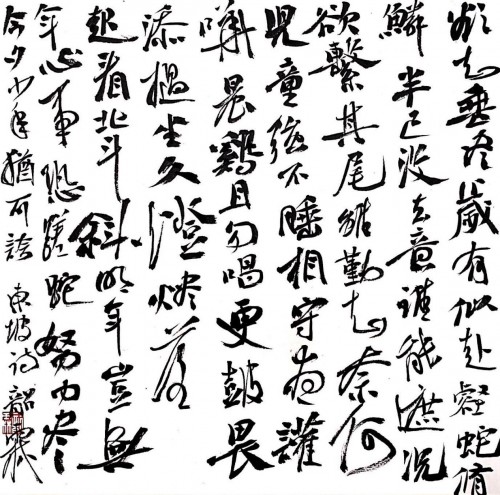 欲知垂盡歲有似赴壑蛇脩
鱗半已没去意誰能遮况
欲繫其尾雖勤知奈何
兒童强不睡相守夜讙
嘩晨鷄且勿唱更鼓畏
添撾坐久燈燼落
起看北斗斜明年豈無
年心事恐蹉跎努力盡
今夕少年猶可誇 東坡詩 韶